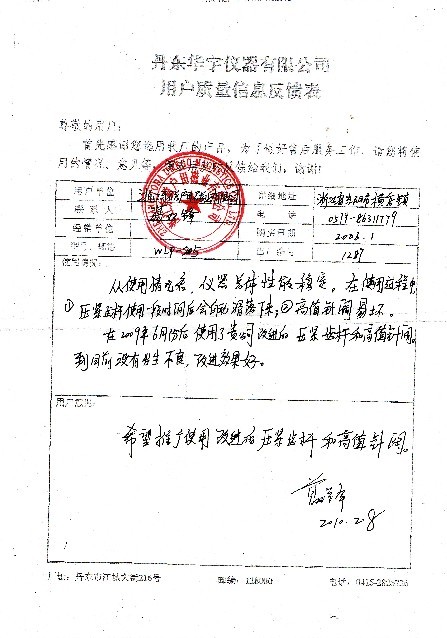 丹东华宇仪器有限公司
用户质量信息反馈表
尊敬的用户:
首先感谢您选用我厂的产品,为了做好售后服务工作,请您将使
用的情况、意见等 反馈给我们,谢谢!
用户单位
详细地址 浙江省东阳市横店镇
联系人 电话 0579-86311779
经销单位 购货日期 2003.1
型号、规格 出厂编号 1287
使用情况:
从使用情况看,仪器总体性较稳定。在使用过程中
①压紧齿杆使用一段时间后会自动滑落下来;②高值针阀易坏。
在2009年6月份后使用了贵公司改进的压紧齿杆和高值针阀。
到目前没有发生不良,改进效果好。
用户意见:
希望推广使用改进后压紧齿杆和高值针阀。
2010.2.8
厂址:丹东市江城大街216号 邮编:118000 电话: